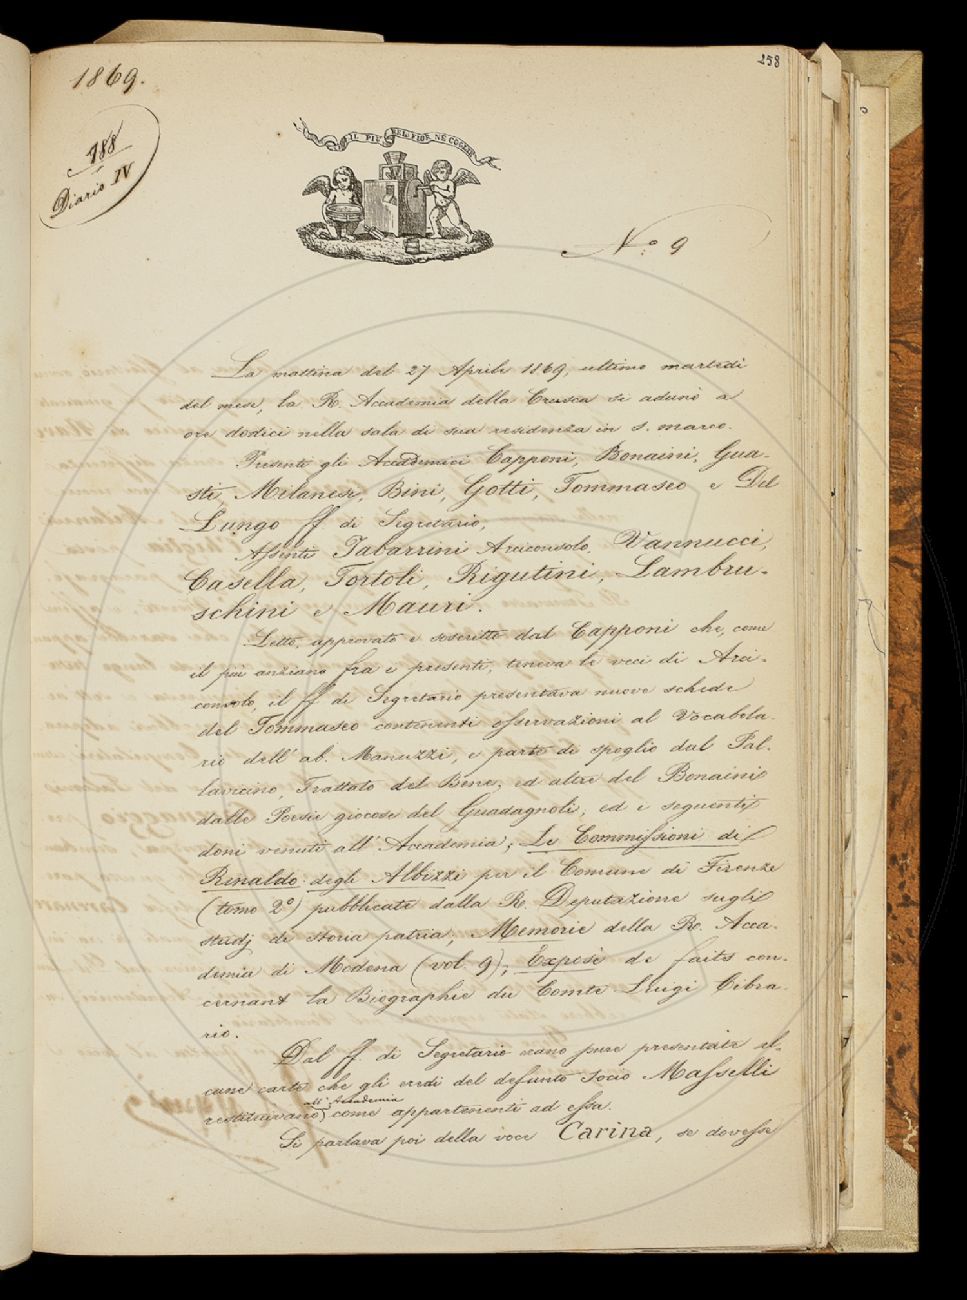 1869.
258
188
Diario IV
IL PIÙ BEL FIOR NE COGLIE
N.º 9
La mattina del 27 Aprile 1869, ultimo martedì
del mese, la R. Accademia della Crusca si adunò a
ore dodici nella sala di sua residenza in S. Marco.
Presenti gli Accademici Capponi, Bonaini, Gua-
sti, Milanesi, Bini, Gotti, Tommaseo e Del
Lungo ff. di Segretario,
Assenti Tabarrini Arciconsolo, Vannucci,
Casella, Tortoli, Rigutini, Lambru-
schini e Mauri.
Letto, approvato e soscritto dal Capponi che, come
il più anziano fra i presenti, teneva le veci di Arci-
consolo, il ff. di Segretario presentava nuove schede
del Tommaseo contenenti osservazioni al Vocabola-
rio dell' ab. Manuzzi, e parte di spoglio dal Pal-
lavicino, Trattato del Bene, ed altre del Bonaini
dalle Poesie giocose del Guadagnoli, ed i seguenti
doni venuti all' Accademia; Le Commissioni di
Rinaldo degli Albizzi per il Comune di Firenze
(tomo 2º) pubblicate dalla R. Deputazione sugli
studj di storia patria; Memorie della R. Acca-
demia di Modena (vol. 9); Exposé de faits con-
cernant la Biographie du Comte Luigi Cibra-
rio.
Dal ff. di Segretario erano pure presentate al-
cune carte che gli eredi del defunto socio Masselli
restituivano all' Accademia come appartenenti ad essa.
Si parlava poi della voce Carina, se dovesse